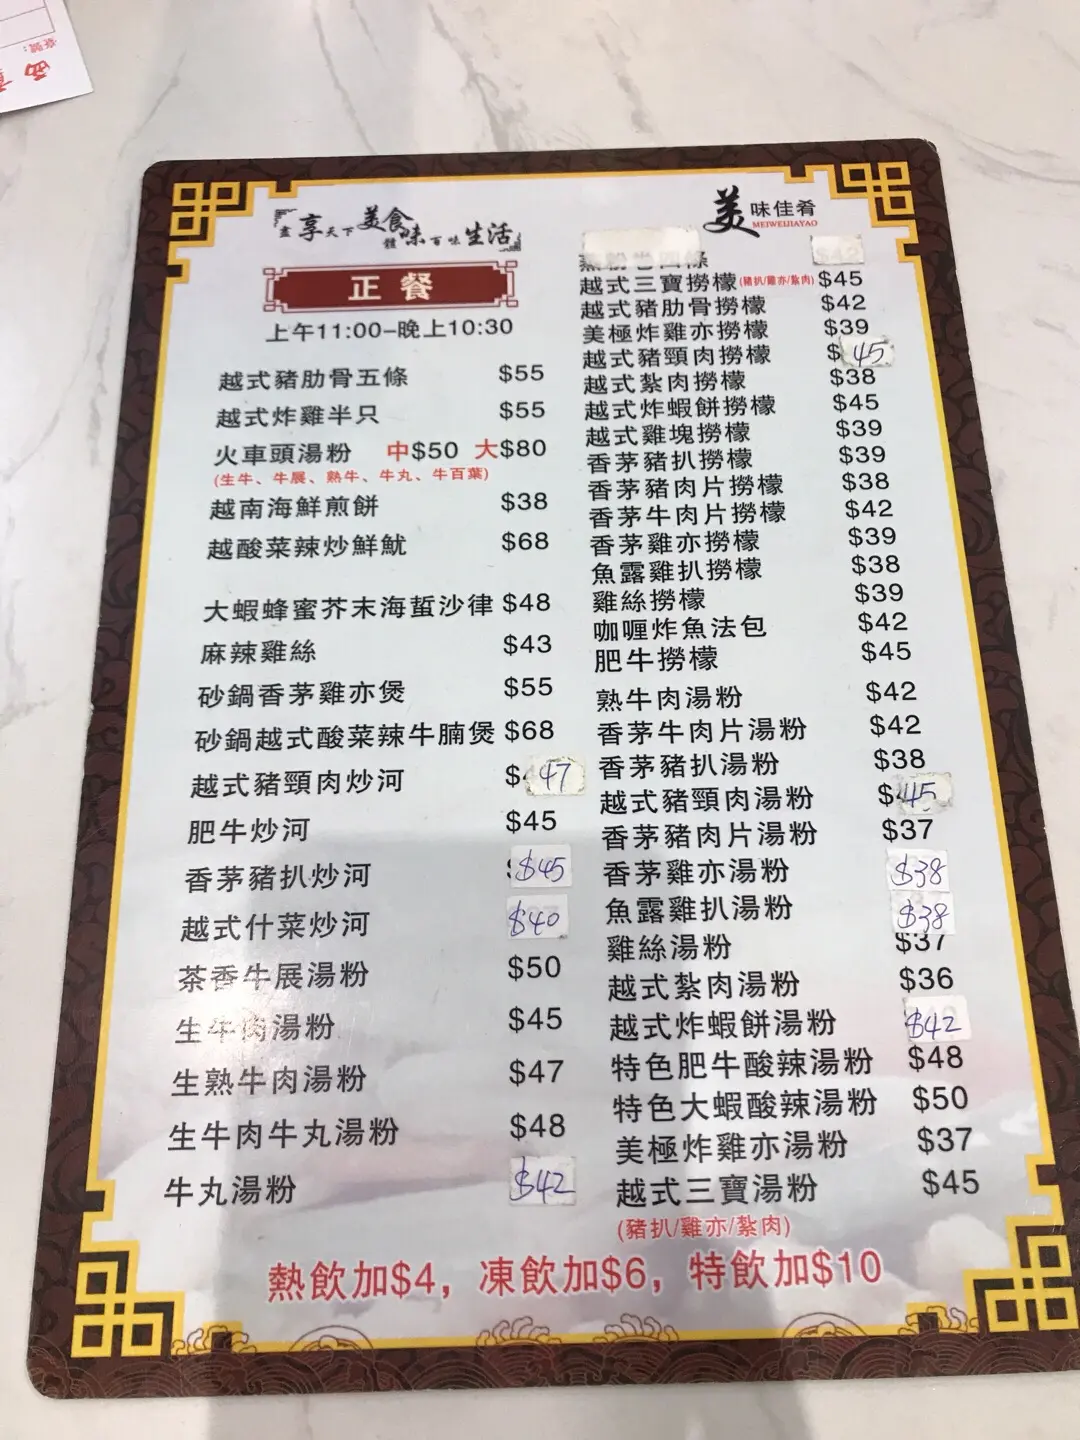 臺號:
『盡享天下美食
體味百味生活』
正餐
上午11:00-晚上10:30
越式豬肋骨五條 $55
越式炸雞半只 $55
火車頭湯粉 中$50 大$80
(生牛、牛展、熟牛、牛丸、牛百葉)
越南海鮮煎餅 $38
越酸菜辣炒鮮魷 $68
大蝦蜂蜜芥末海蜇沙律 $48
麻辣雞絲 $43
砂鍋香茅雞亦煲 $55
砂鍋越式酸菜辣牛腩煲 $68
越式豬頸肉炒河 $47
肥牛炒河 $45
香茅豬扒炒河 $45
越式什菜炒河 $40
茶香牛展湯粉 $50
生牛肉湯粉 $45
生熟牛肉湯粉 $47
生牛肉牛丸湯粉 $48
牛丸湯粉 $42
美味佳肴
MEIWEIJIAYAO
越式三寶撈檬(豬扒/雞亦/紮肉) $45
越式豬肋骨撈檬 $42
美極炸雞亦撈檬 $39
越式豬頸肉撈檬 $45
越式紮肉撈檬 $38
越式炸蝦餅撈檬 $45
越式雞塊撈檬 $39
香茅豬扒撈檬 $39
香茅豬肉片撈檬 $38
香茅牛肉片撈檬 $42
香茅雞亦撈檬 $39
魚露雞扒撈檬 $38
雞絲撈檬 $39
咖喱炸魚法包 $42
肥牛撈檬 $45
熟牛肉湯粉 $42
香茅牛肉片湯粉 $42
香茅豬扒湯粉 $38
越式豬頸肉湯粉 $45
香茅豬肉片湯粉 $37
香茅雞亦湯粉 $38
魚露雞扒湯粉 $38
雞絲湯粉 $37
越式紮肉湯粉 $36
越式炸蝦餅湯粉 $42
特色肥牛酸辣湯粉 $48
特色大蝦酸辣湯粉 $50
美極炸雞亦湯粉 $37
越式三寶湯粉 $45
(豬扒/雞亦/紮肉)
熱飲加$4，凍飲加$6，特飲加$10